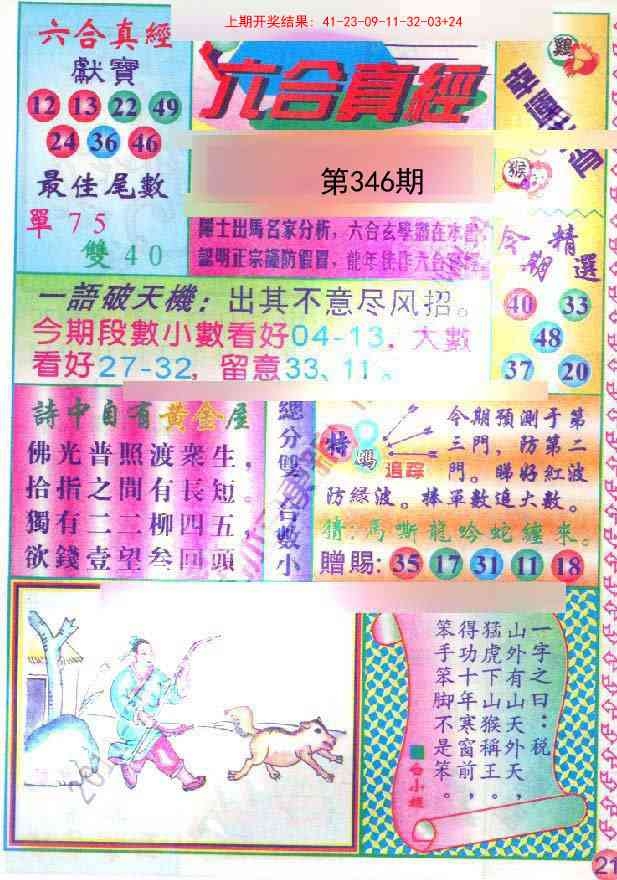 上期开奖结果：41-23-09-11-32-03+24
六合真經
獻寶
12 13 22 49
24 36 46
最佳尾數
單 7 5
雙 4 0
六合真經
第346期
鷄
猴
今期
精選
40 33
48
37 20
一語破天機：出其不意尽风招。
今期段數小數看好04-13，大數
看好27-32，留意33、11。
詩中自有黃金屋
佛光普照渡衆生，
拾指之間有長短。
獨有二二柳四五，
欲錢壹望叁回頭
總分雙
合數小
特
碼
追踪
今期預測于第
三門，防第二
門。睇好紅波
防綠波。捧單數追大數。
猜：馬嘶龍吟蛇纏來。
贈賜：35 17 31 11 18
一字之曰：税
山外有山天外天，
猛虎下山猴稱王。
得功十年寒窗前，
笨手笨脚不是笨。
21